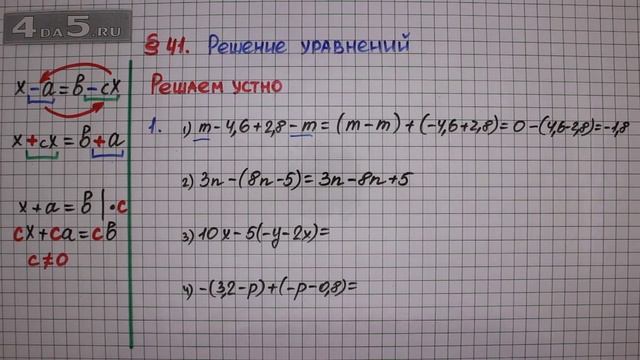 4DA5.RU
§ 41. Решение уравнений
x-a=b-cx
x+cx=b+a
x+a=b|·c
cx+ca=cb
c≠0
Решаем устно
1. 1) m-4,6+2,8-m=(m-m)+(-4,6+2,8)=0-(4,6-2,8)=-1,8
2) 3n-(8n-5)=3n-8n+5
3) 10x-5(-y-2x)=
4) -(3,2-p)+(-p-0,8)=